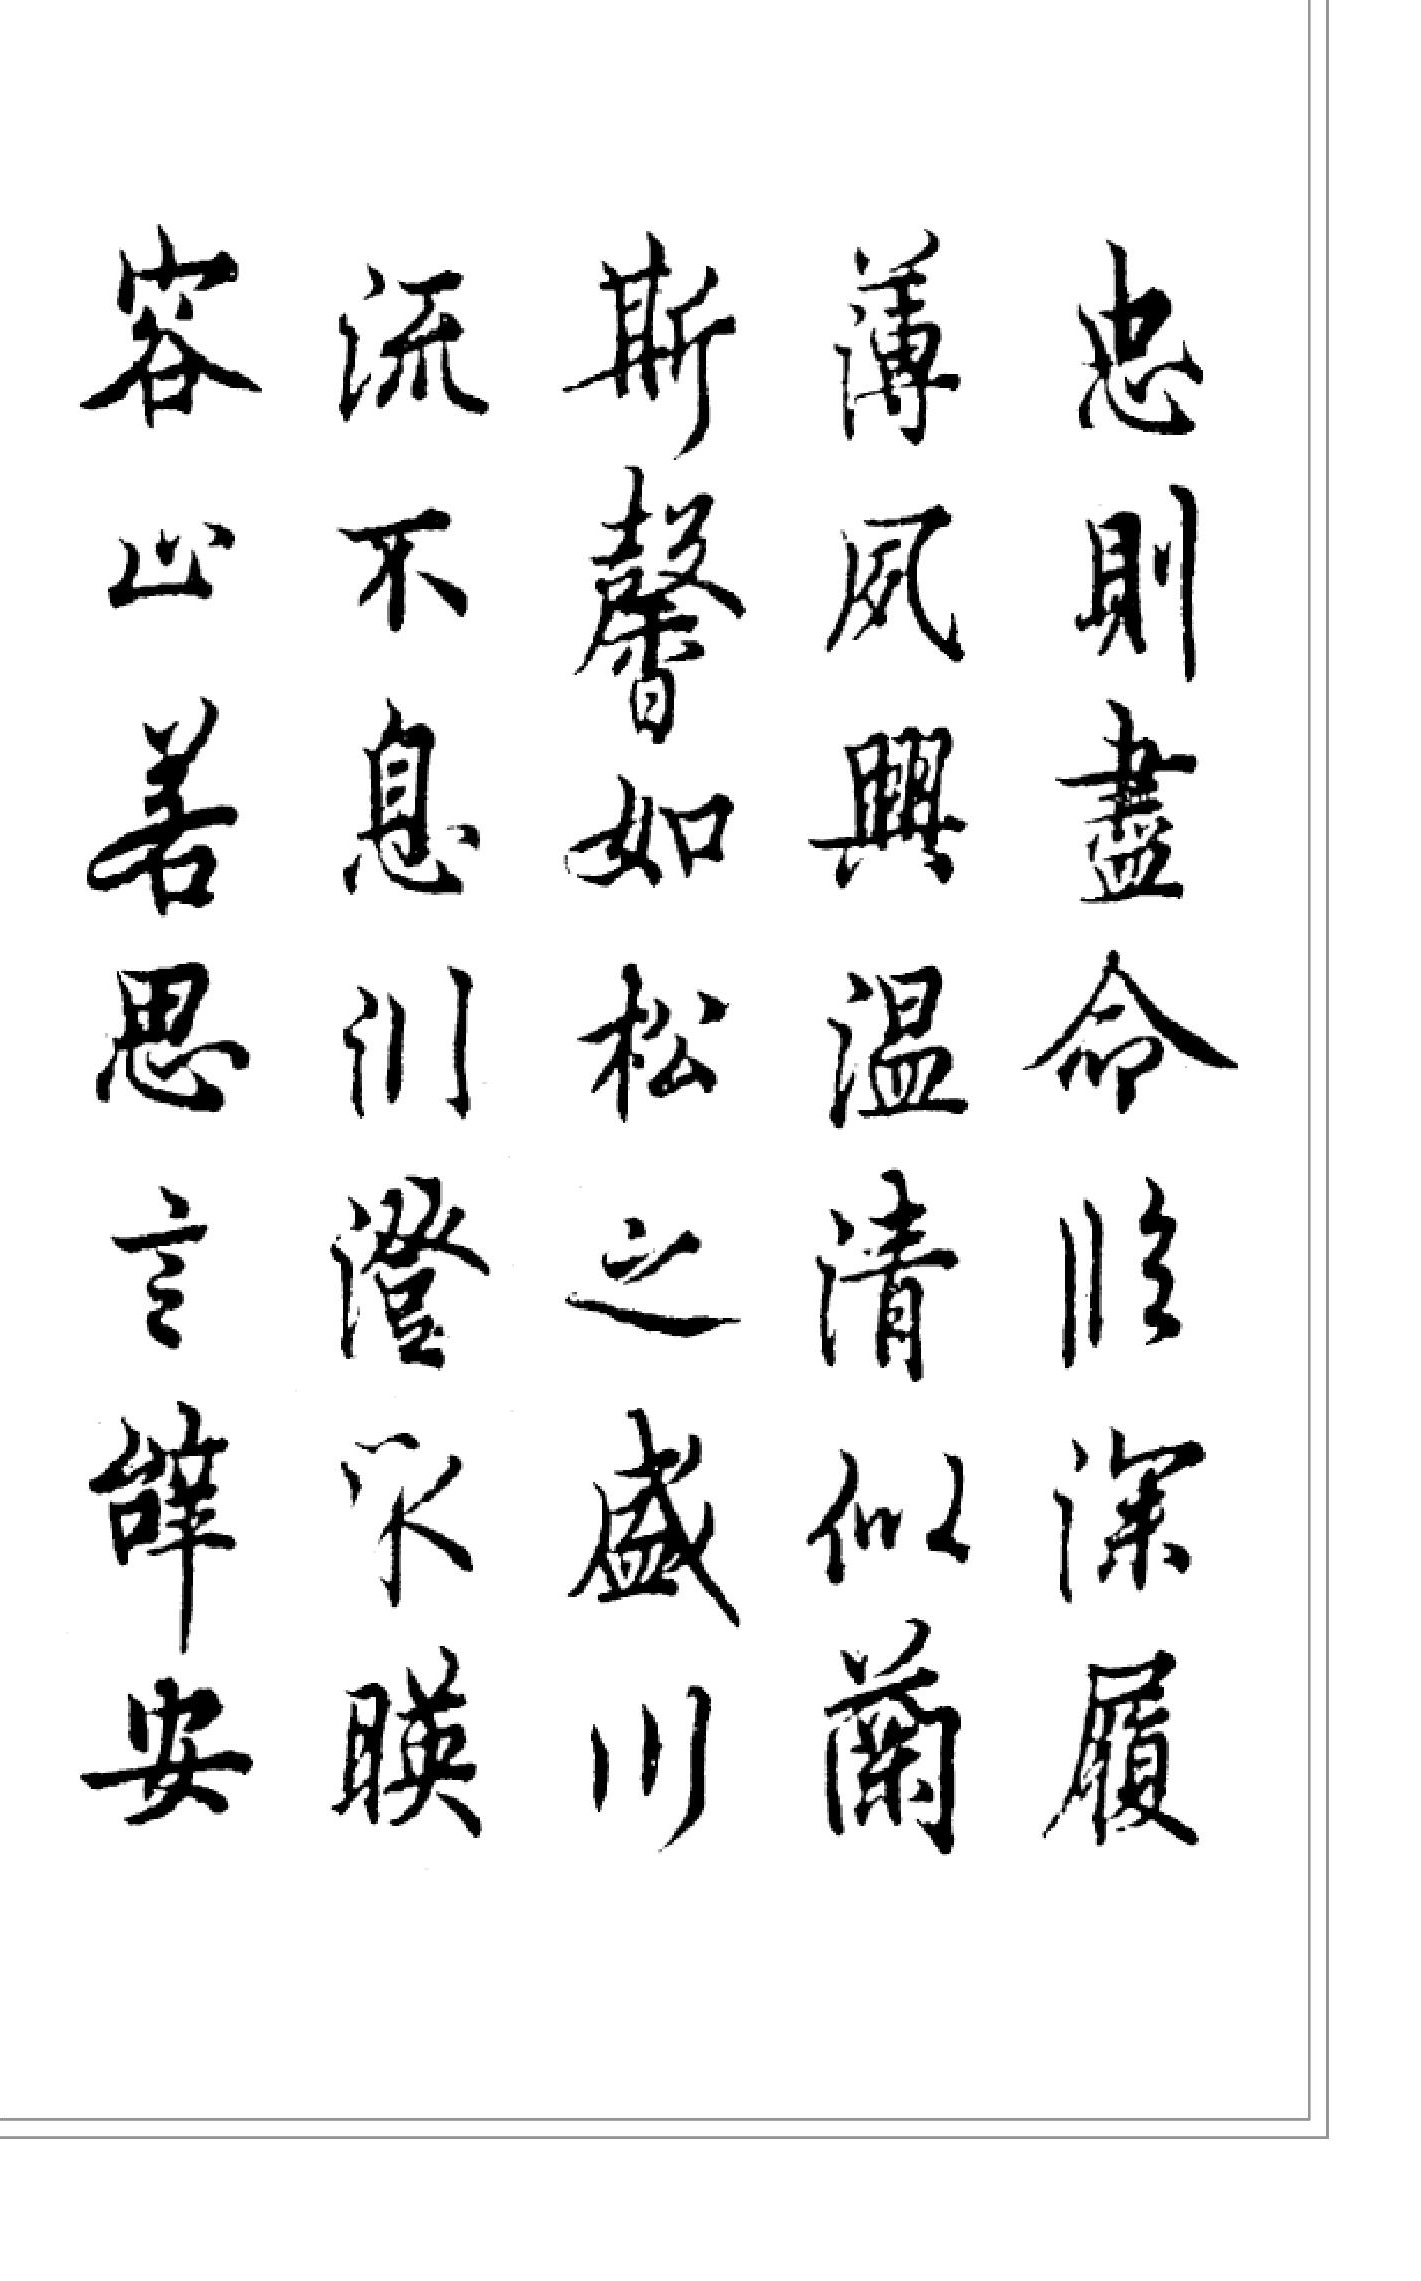 忠則盡命临深履
薄夙興温清似蘭
斯馨如松之盛川
流不息渊澄取暎
容止若思言辭安